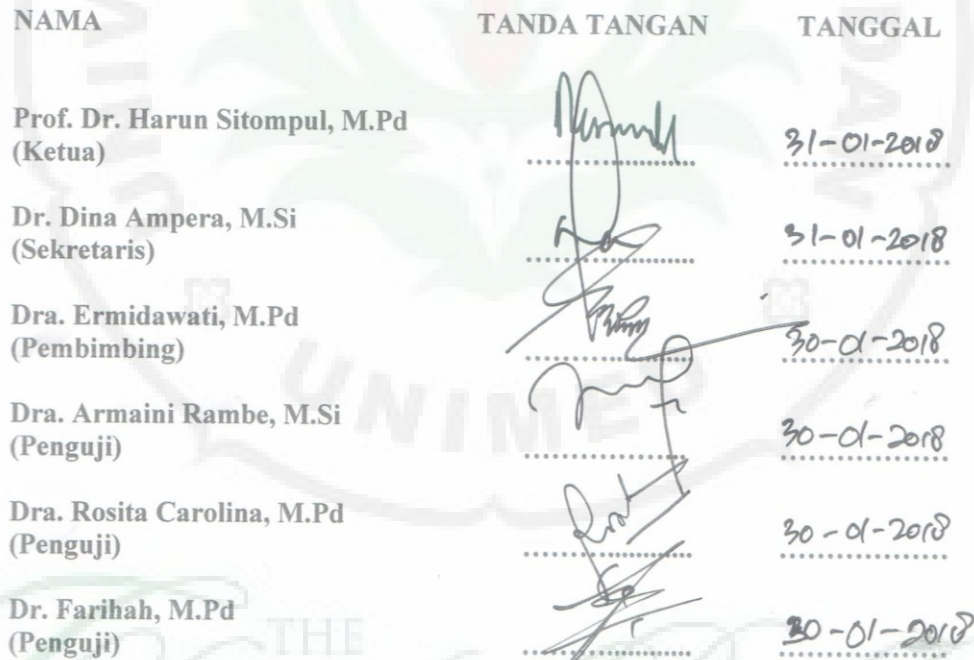 NAMA TANDA TANGAN TANGGAL
Prof. Dr. Harun Sitompul, M.Pd
(Ketua) 31-01-2018
Dr. Dina Ampera, M.Si
(Sekretaris) 31-01-2018
Dra. Ermidawati, M.Pd
(Pembimbing) 30-01-2018
UNIMED
Dra. Armaini Rambe, M.Si
(Penguji) 30-01-2018
Dra. Rosita Carolina, M.Pd
(Penguji) 30-01-2018
Dr. Farihah, M.Pd
THE
(Penguji) 30-01-2018